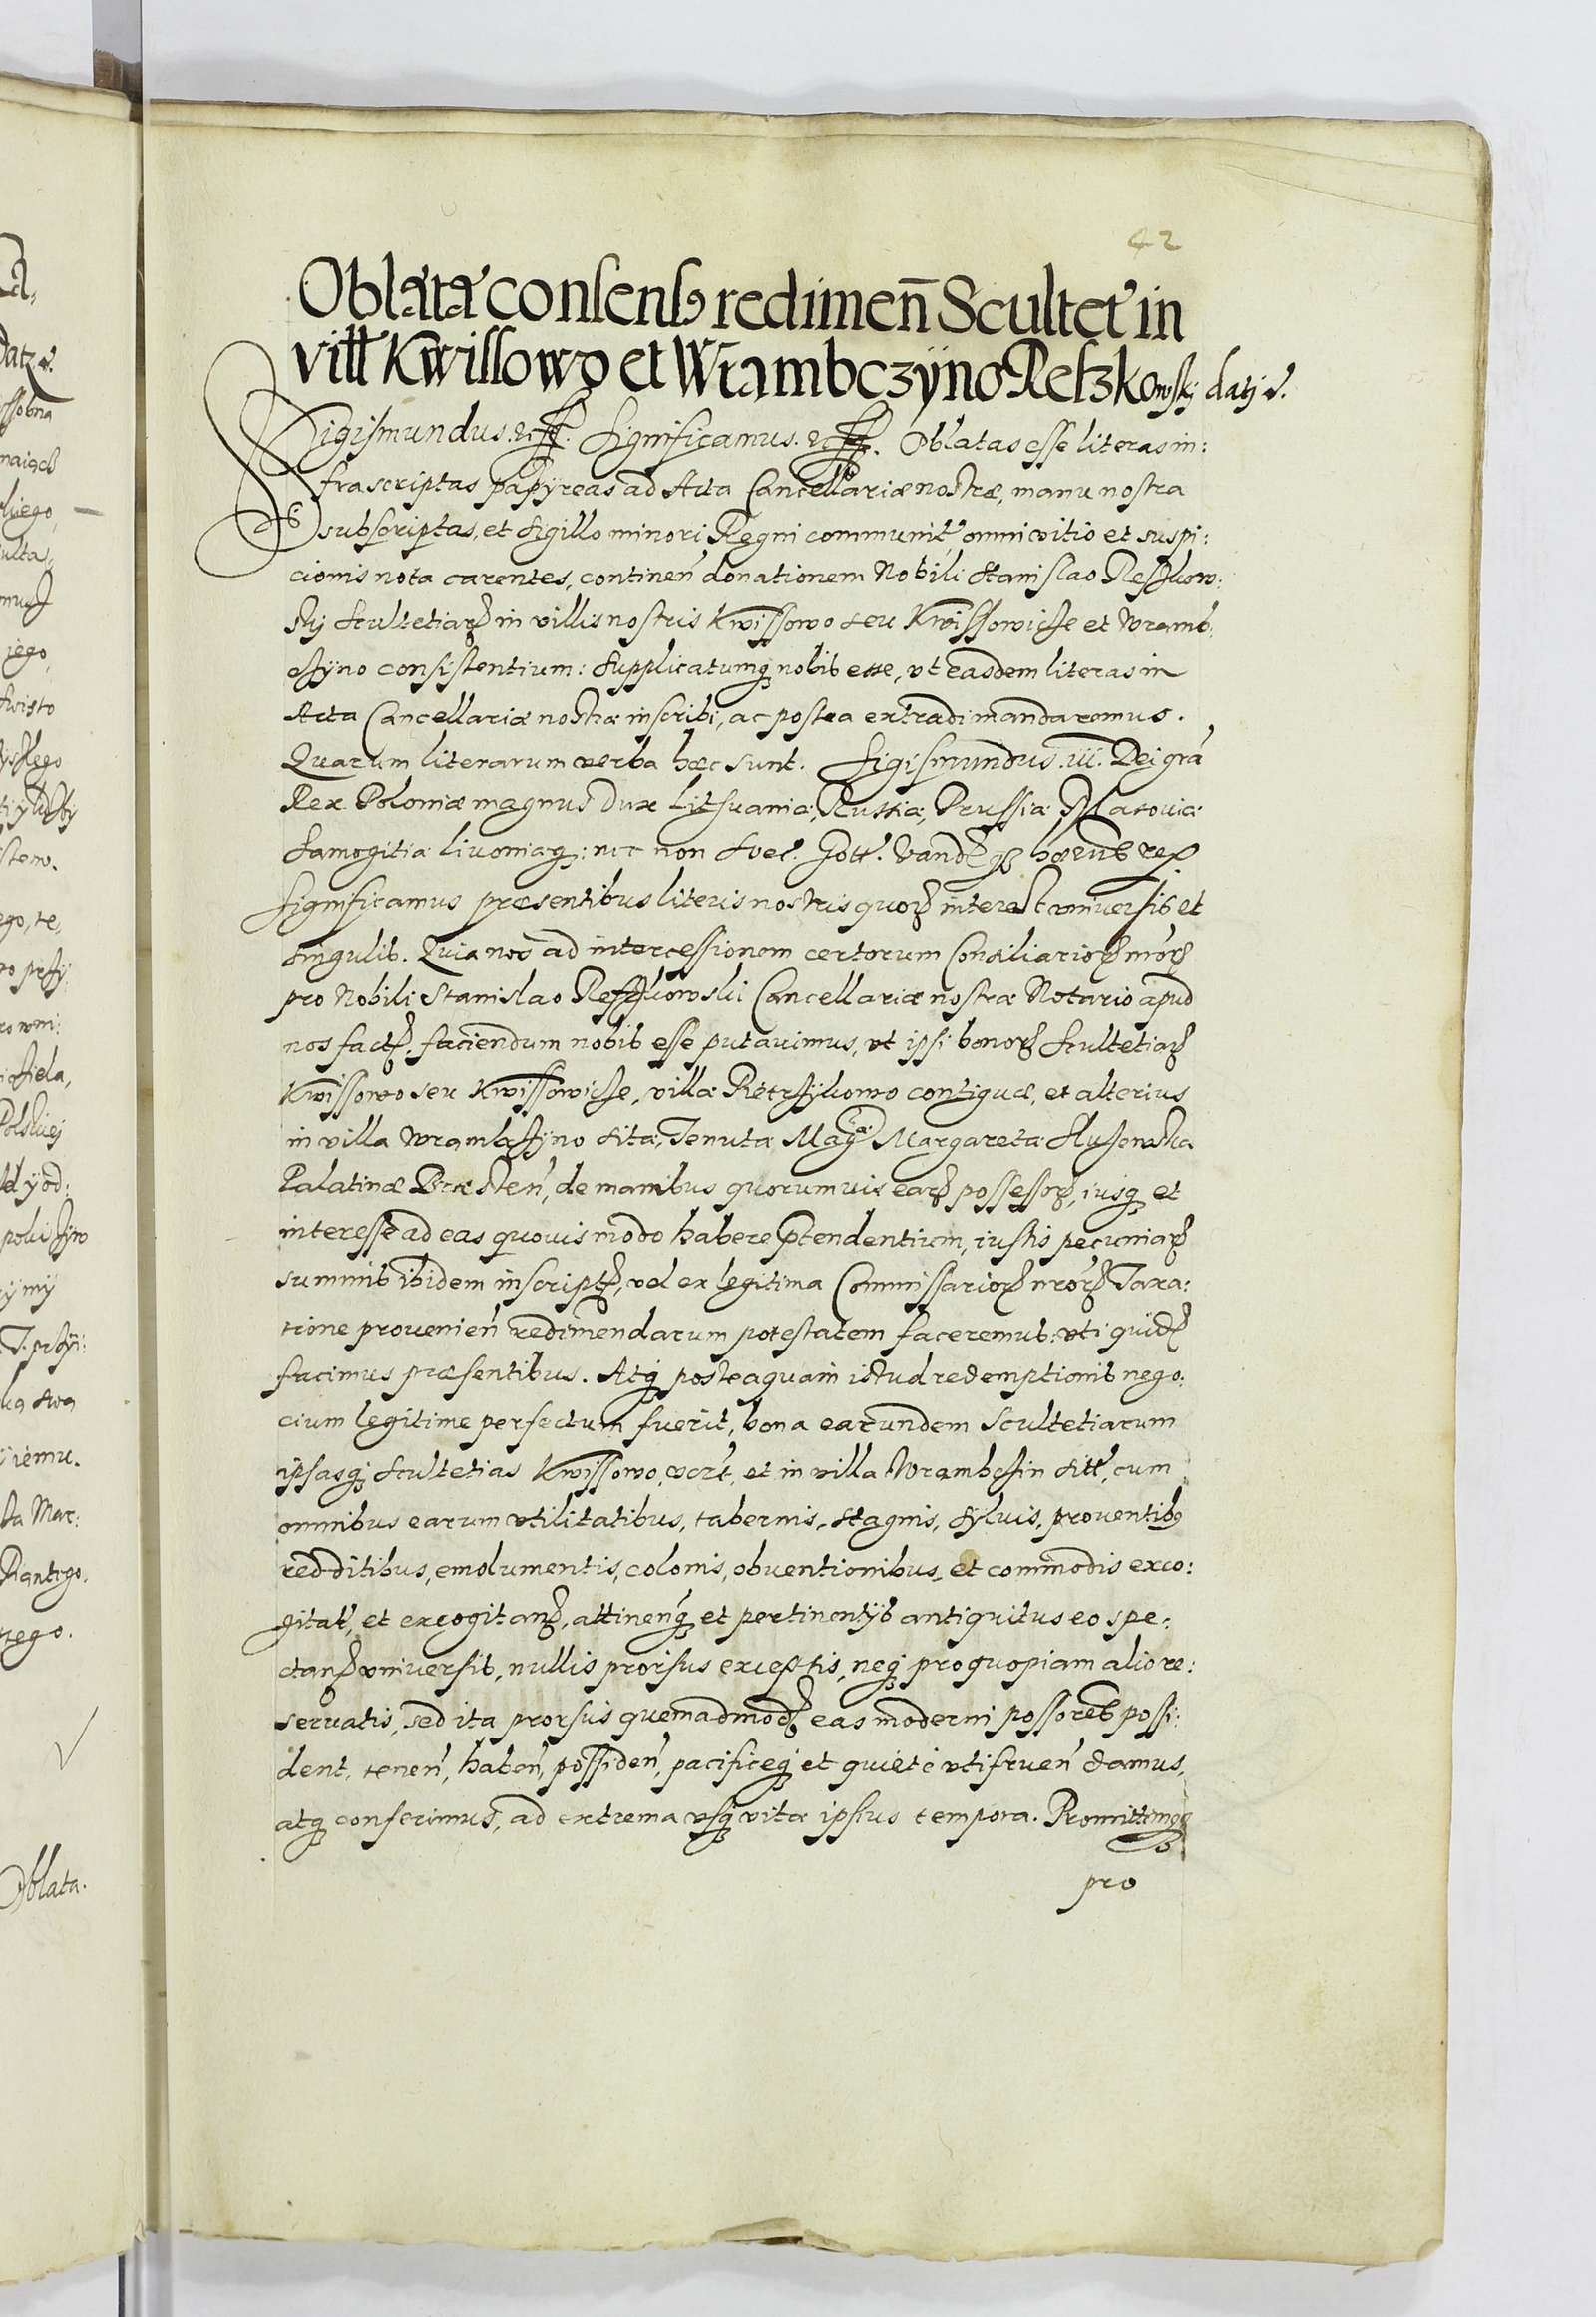 42
Oblata consens9 redimen̄ Scultet in
vill Kwissowo et Wrambczÿno Reſzkowskj datj &.
Sigismundus. &c. Significamus. &c. Oblatas esse literas in:
frascriptas papÿreas ad Acta Cancellariæ nostræ, manu nostra
subscriptas, et sigillo minori Regni communit omni vitio et suspi:
cionis nota carentes, continen̄ donationem Nobili Stanislao Reszkow:
skj Scultetiarꝝ in villis nostris Kwissowo seu Kwissowicze et Wramb,
czÿno consistentium: Supplicatumqꝫ nobis esse, vt easdem literas in
Acta Cancellariæ nostræ inscribi, ac postea extradi mandaremus.
Quarum literarum verba hæc sunt. Sigismundus. iii. Dei grã
Rex Poloniæ magnus Dux Lithuaniæ, Russiæ, Prussiæ Masoviæ
Samogitiæ Livoniæqꝫ: nec non Svec. Gott. Vand. qꝫ hæred rex
Significamus præsentibus literis nostris quorꝝ interest vniversis et
singulis. Quia nos ad intercessionem certorum Consiliariorꝝ nrorꝝ
pro Nobili Stanislao Reszkowski Cancellariæ nostræ Notario apud
nos fact, faciendum nobis esse putavimus, vt ipsi bonorꝝ Scultetiarꝝ
Kwissowo seu Kwissowicze, villæ Retrzÿkowo contiguæ, et alterius
in villa Wrambczÿno sitæ, Tenutæ Magcæ Margaretæ Sluzewska
Palatinæ Bresten̄, de manibus quorumvis earꝝ possessorꝝ, iusqꝫ et
interesse ad eas quovis modo habere ptendentium, iustis pecuniarꝝ
summis ibidem inscript, vel ex legitima Commissariorꝝ nrorꝝ Taxa:
tione provenien̄ redimendarum potestatem faceremus: vti quidẽ
facimus præsentibus. Atqꝫ posteaquam istud redemptionis nego:
cium legitime perfectum fuerit, bona earundem Scultetiarum
ipsasqꝫ Scultetias Kwissowo, vcrt, et in villa Wrambczin sitt, cum
omnibus earum vtilitatibus, tabernis, stagnis, sÿlvis, proventib9
redditibus, emolumentis, colonis, obventionibus, et commodis exco:
gitat, et excogitand, attinen̄qꝫ et pertinentÿs antiquitus eo spe:
ctand vniversis, nullis prorsus exceptis, neqꝫ pro quopiam alio re:
servatis, sed ita prorsus quemadmodꝫ eas moderni possores possi:
dent, tenen̄, haben̄, possiden̄, pacificeqꝫ et quietè vtifruen̄ damus,
atqꝫ conferimus, ad extrema vsqꝫ vitæ ipsius tempora. Promittimqꝫ
pro